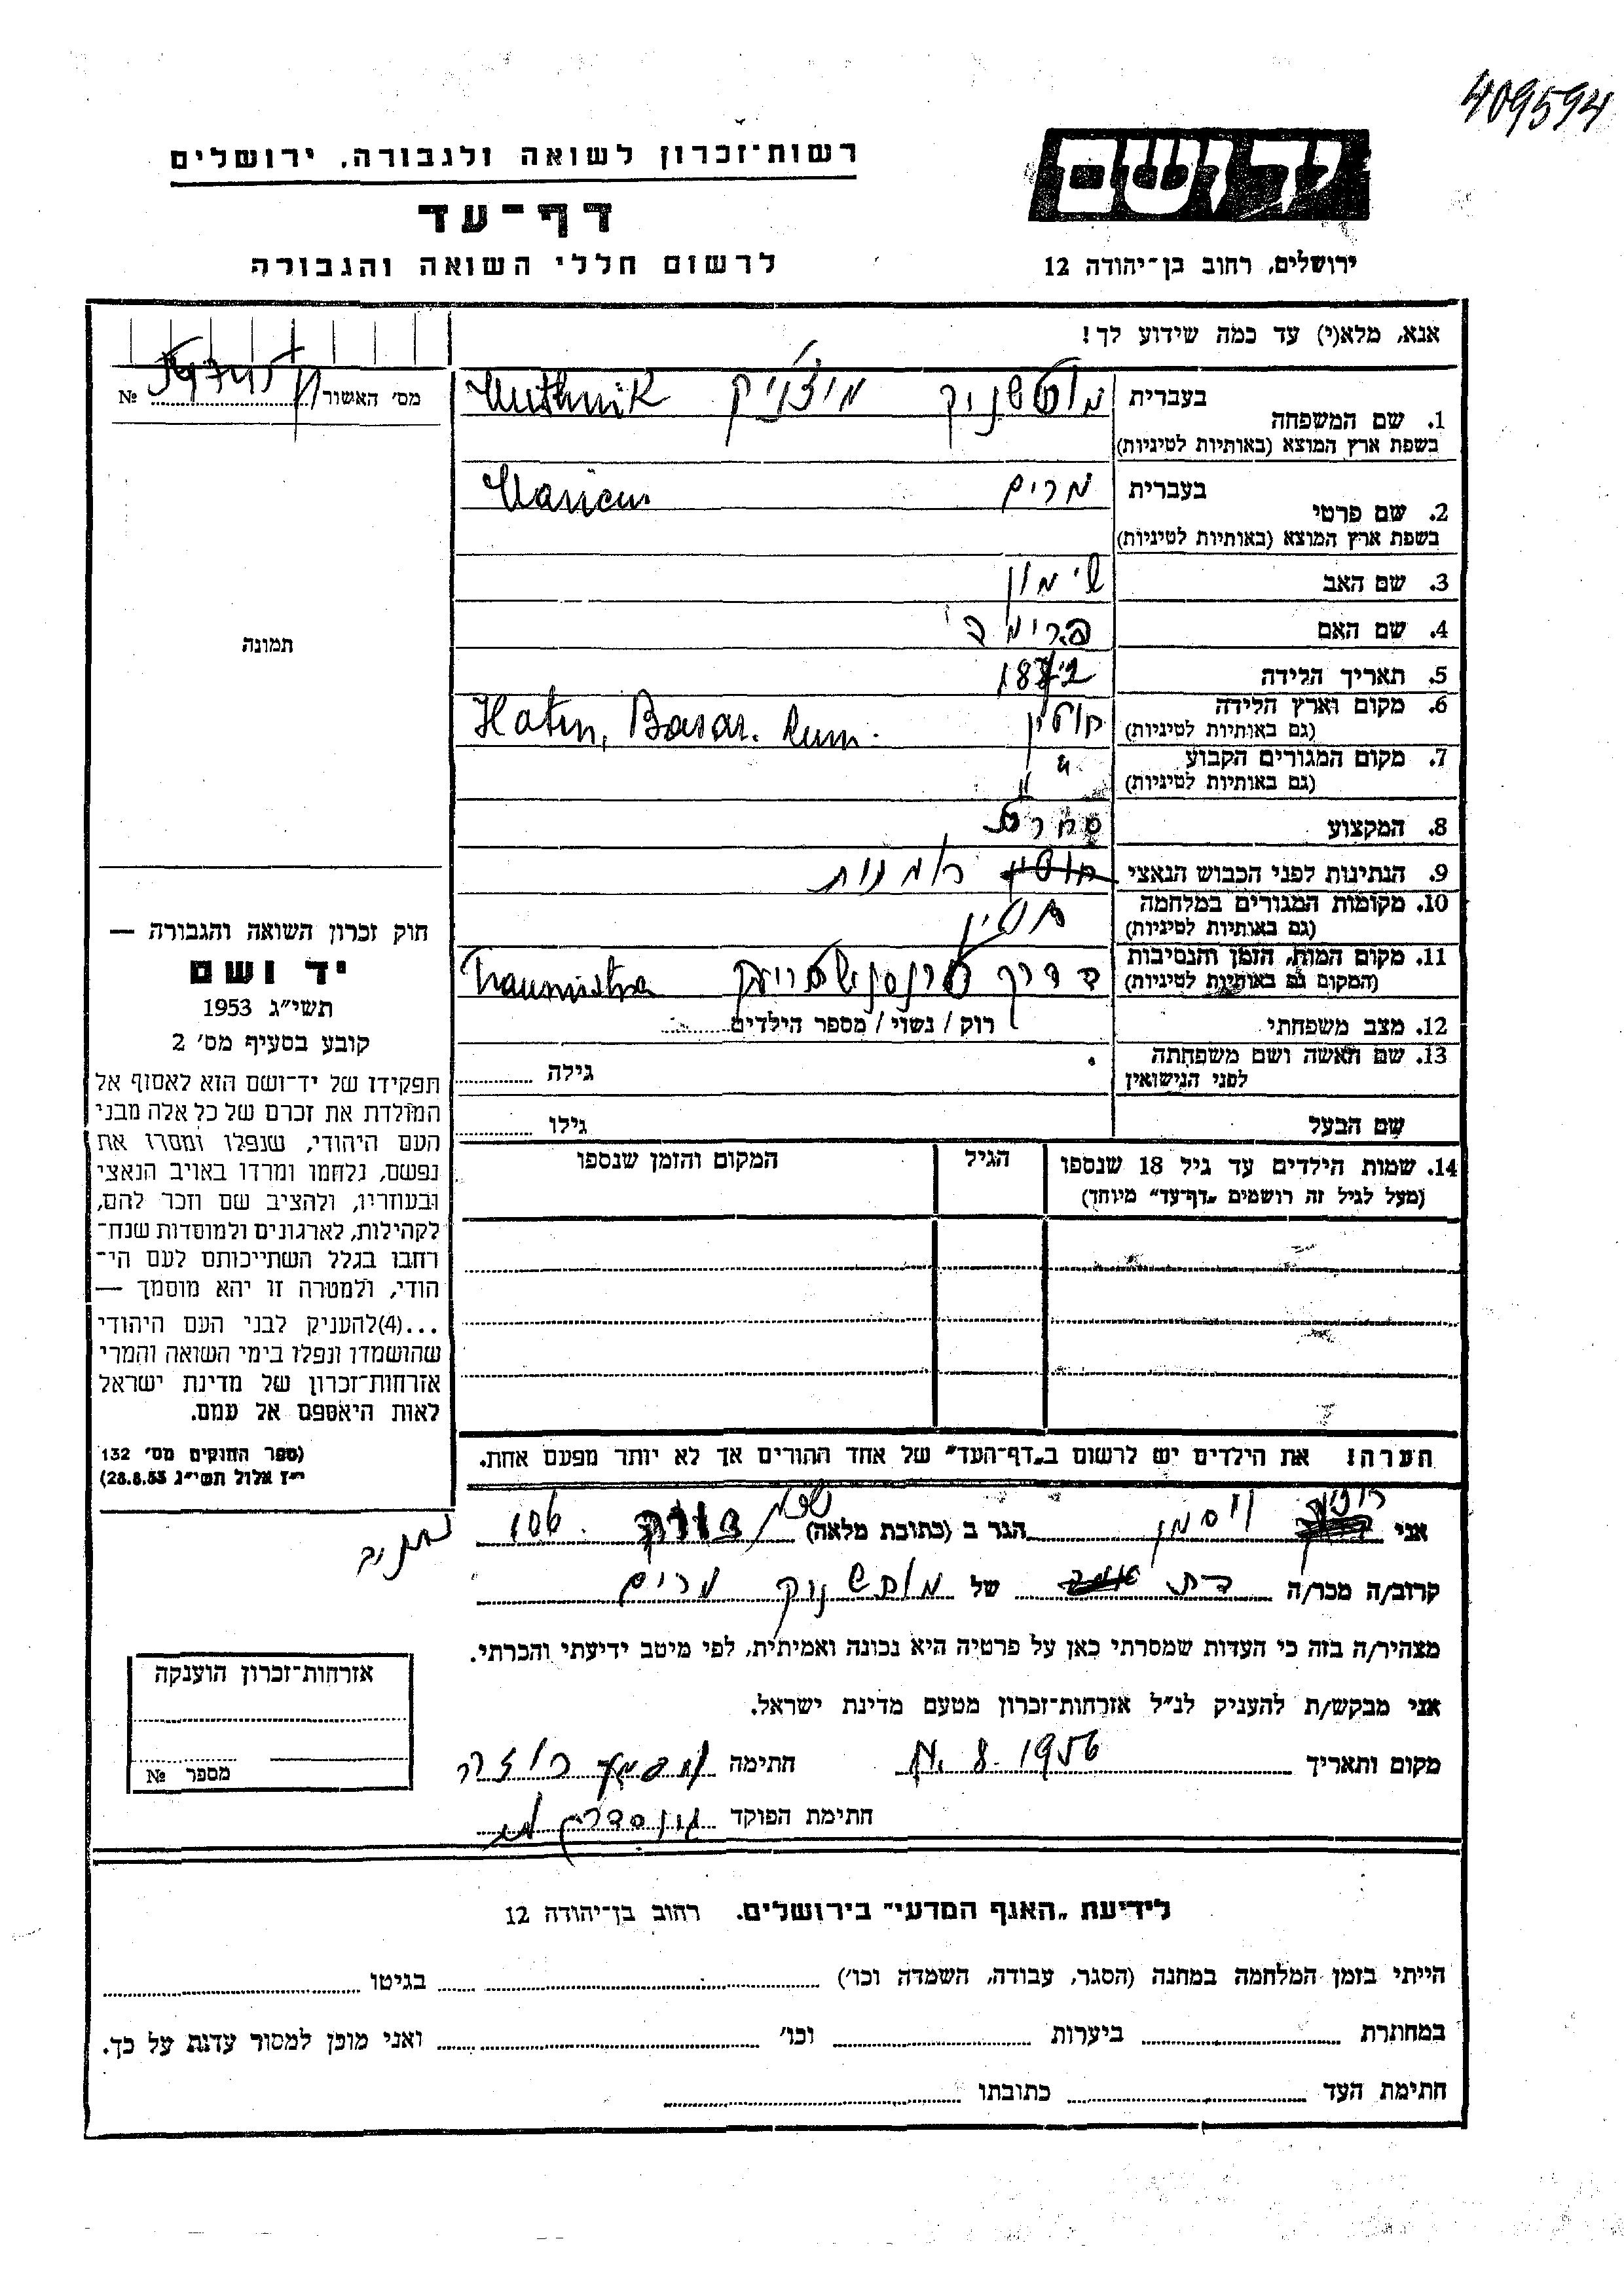 409594
רשות-זכרון לשואה ולגבורה, ירושלים
יד ושם
דף-עד
לרשום חללי השואה והגבורה
ירושלים, רחוב בן-יהודה 12
אנא, מלא(י) עד כמה שידוע לך!
מס' האשור №
1. שם המשפחה בעברית מוטשניק מיצ'ניק Muthnik
בשפת ארץ המוצא (באותיות לטיניות)
2. שם פרטי בעברית מרים Mariem
בשפת ארץ המוצא (באותיות לטיניות)
3. שם האב שימון
4. שם האם
תמונה
5. תאריך הלידה
6. מקום וארץ הלידה חוטין Hotin, Basar. Rum.
(גם באותיות לטיניות)
7. מקום המגורים הקבוע "
(גם באותיות לטיניות)
8. המקצוע סוחרת
9. הנתינות לפני הכבוש הנאצי חוטין רומנית
10. מקומות המגורים במלחמה חוטין
(גם באותיות לטיניות)
11. מקום המות, הזמן והנסיבות בדרך לטרנסניסטריה Transnistra
(המקום גם באותיות לטיניות)
12. מצב משפחתי רוק / נשוי / מספר הילדים
13. שם האשה ושם משפחתה
לפני הנישואין גילה
שם הבעל גילו
14. שמות הילדים עד גיל 18 שנספו הגיל המקום והזמן שנספו
(מעל לגיל זה רושמים „דף-עד" מיוחד)
חוק זכרון השואה והגבורה —
יד ושם
תשי"ג 1953
קובע בסעיף מס' 2
תפקידו של יד-ושם הוא לאסוף אל
המולדת את זכרם של כל אלה מבני
העם היהודי, שנפלו ומסרו את
נפשם, נלחמו ומרדו באויב הנאצי
ובעוזריו, ולהציב שם וזכר להם,
לקהילות, לארגונים ולמוסדות שנח-
רחבו בגלל השתייכותם לעם הי-
הודי, ולמטרה זו יהא מוסמך —
...(4) להעניק לבני העם היהודי
שהושמדו ונפלו בימי השואה והמרי
אזרחות-זכרון של מדינת ישראל
לאות היאספם אל עמם.
(ספר החוקים מס' 132
י"ז אלול תשי"ג 28.8.53)
הערה: את הילדים יש לרשום ב„דף-העד" של אחד ההורים אך לא יותר מפעם אחת.
אני ויסמן הגר ב (כתובת מלאה) 106
קרוב/ה מכר/ה בת של מוטשניק מרים
מצהיר/ה בזה כי העדות שמסרתי כאן על פרטיה היא נכונה ואמיתית, לפי מיטב ידיעתי והכרתי.
אני מבקש/ת להעניק לנ"ל אזרחות-זכרון מטעם מדינת ישראל.
מקום ותאריך 8. 1956 חתימה
חתימת הפוקד
אזרחות-זכרון הוענקה
מספר №
לידיעת „האגף המדעי" בירושלים. רחוב בן-יהודה 12
הייתי בזמן המלחמה במחנה (הסגר, עבודה, השמדה וכו') בגיטו
במחתרת ביערות וכו' ואני מוכן למסור עדות על כך.
חתימת העד כתובתו